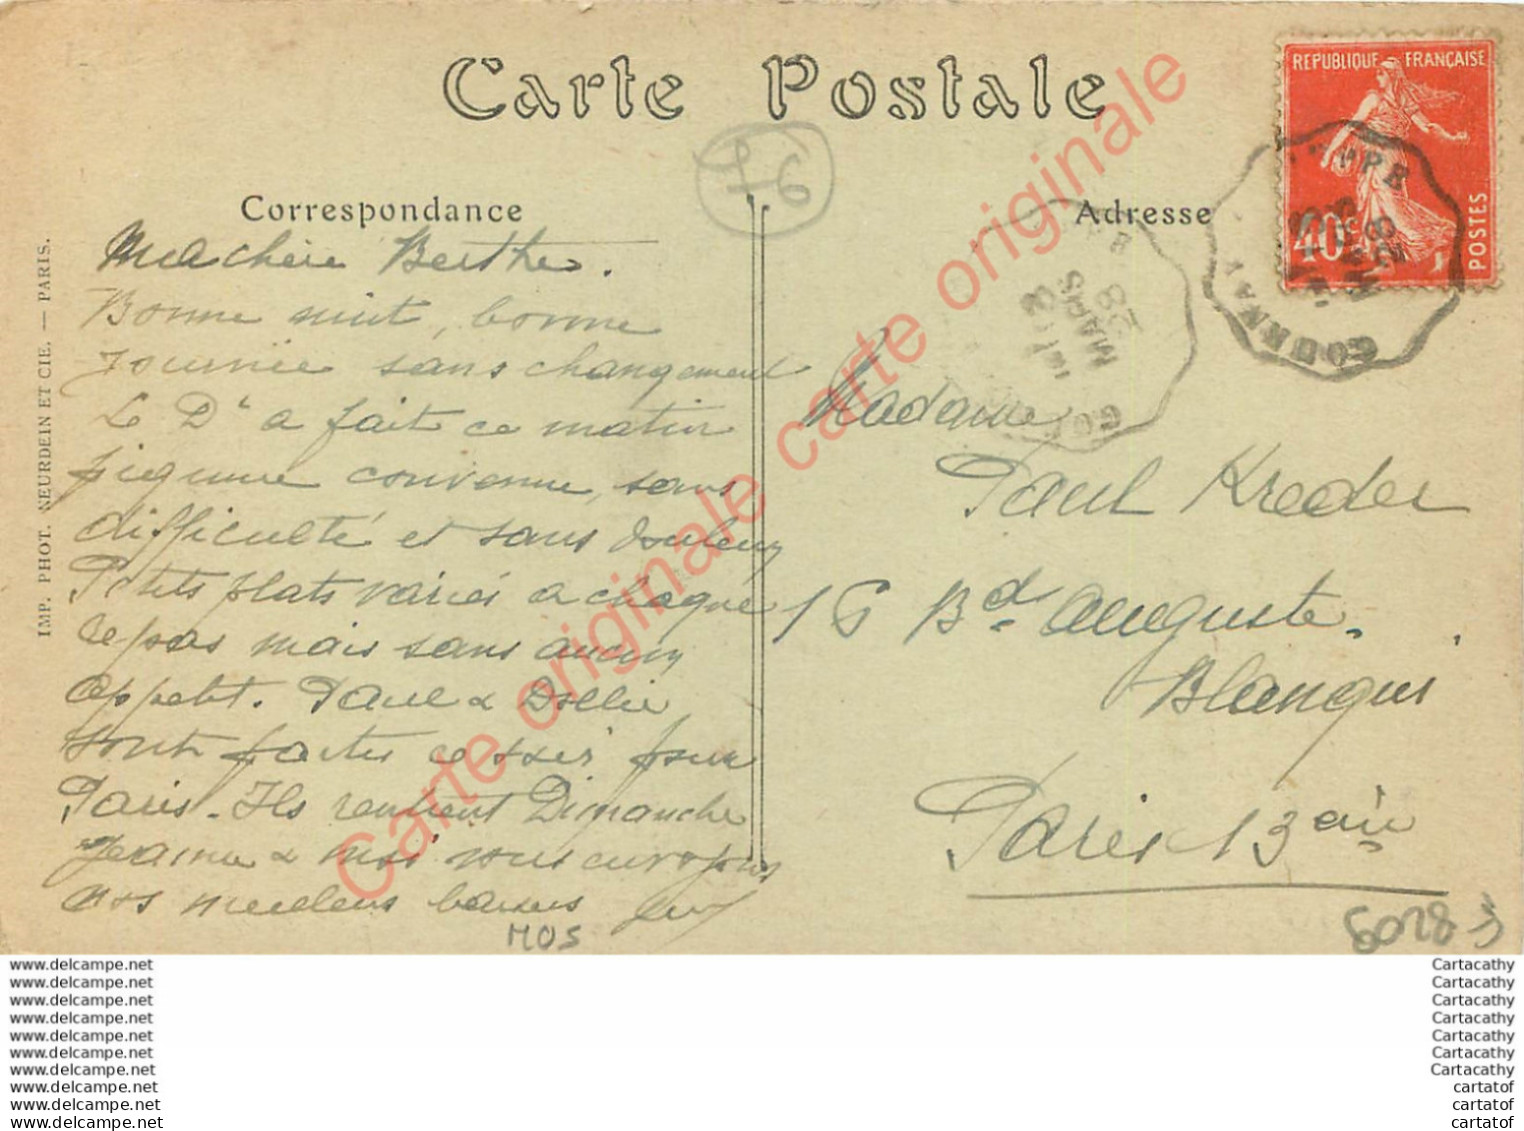 Carte Postale
Correspondance
Adresse
IMP. PHOT. NEURDEIN ET CIE. — PARIS.
REPUBLIQUE FRANÇAISE
40c
POSTES
GOURNAY
8
MARS
46
Ma chère Berthe.
Bonne nuit, bonne
Journée sans changement
Le Dr a fait ce matin
piqure convenue, sans
difficulté et sans douleur
Petits plats variés a chaque
repas mais sans aucun
appetit. Paul &
sont partis ce soir pour
Paris. Ils rentrent Dimanche
Jeanne & moi vous envoyons
nos meilleurs baisers
Madame
Paul Kreder
16 Bd Auguste
Blanqui
Paris 13 eme
MOS
Carte originale carte originale carte originale
www.delcampe.net
www.delcampe.net
www.delcampe.net
www.delcampe.net
www.delcampe.net
www.delcampe.net
www.delcampe.net
www.delcampe.net
www.delcampe.net
www.delcampe.net
Cartacathy
Cartacathy
Cartacathy
Cartacathy
Cartacathy
Cartacathy
Cartacathy
cartatof
cartatof
cartatof